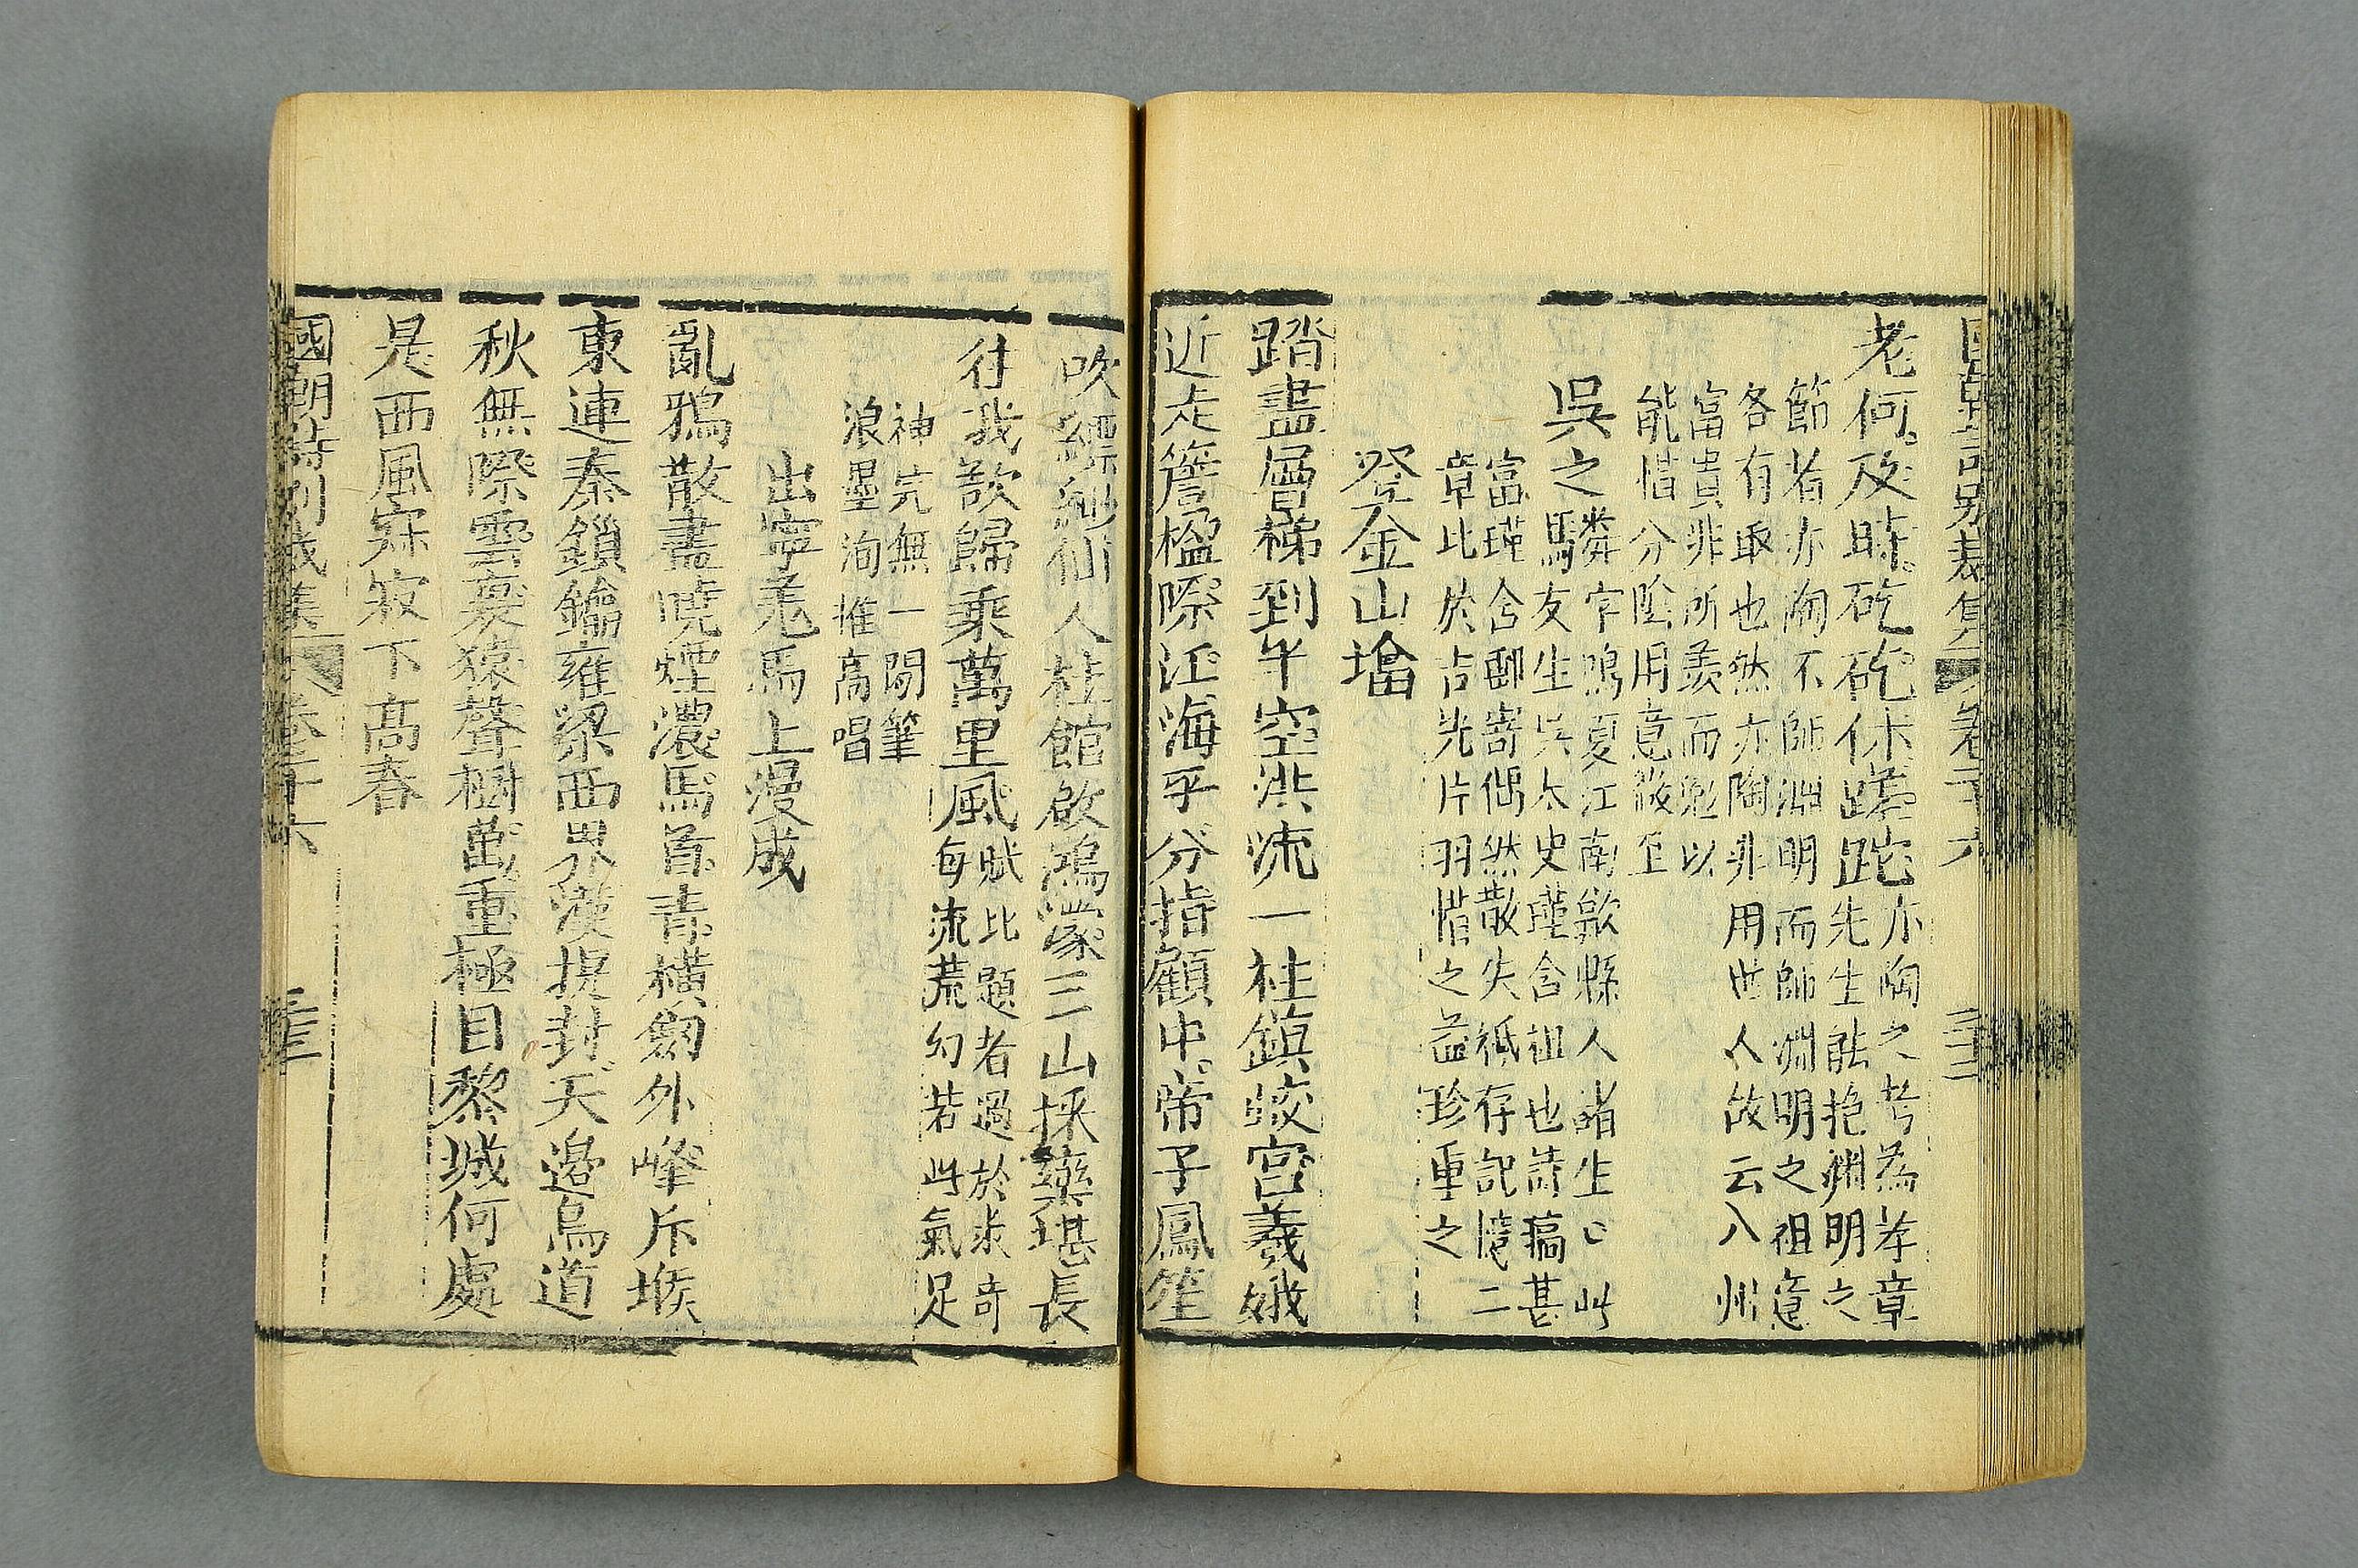 國朝詩別裁集 卷二十六 二十二
老何及時矻矻休蹉跎亦陶之苦為孝章
先生能挹淵明之
節者亦陶不師淵明而師淵明之祖意
各有取也然亦陶非用世人故云八州
富貴非所羨而勉以
能惜分陰用意微至
吳之騄
字鳴夏江南歙縣人諸生〇此
友生吳太史瞻含祖也詩稿甚
富瑾含郵寄偶然散失祇存記憶二
章比於吉光片羽惜之益珍重之
登金山塔
踏盡層梯到半空洪流一柱鎮蛟宮羲娥
近走簷楹際江海平分指顧中帝子鳳笙
吹縹緲仙人桂館啟鴻濛三山採藥堪長
往我欲歸乘萬里風
賦比題者過於求奇
每流荒幻若此氣足
神完無一閒筆
浪墨洵推高唱
出寧羌馬上漫成
亂鴉散盡曉煙濃馬首青橫劍外峰斥堠
東連秦鎖鑰雍梁西界漢提封天邊鳥道
秋無際雲裏猿聲樹萬重極目黎城何處
是西風寂寂下高舂
國朝詩別裁集 卷二十六